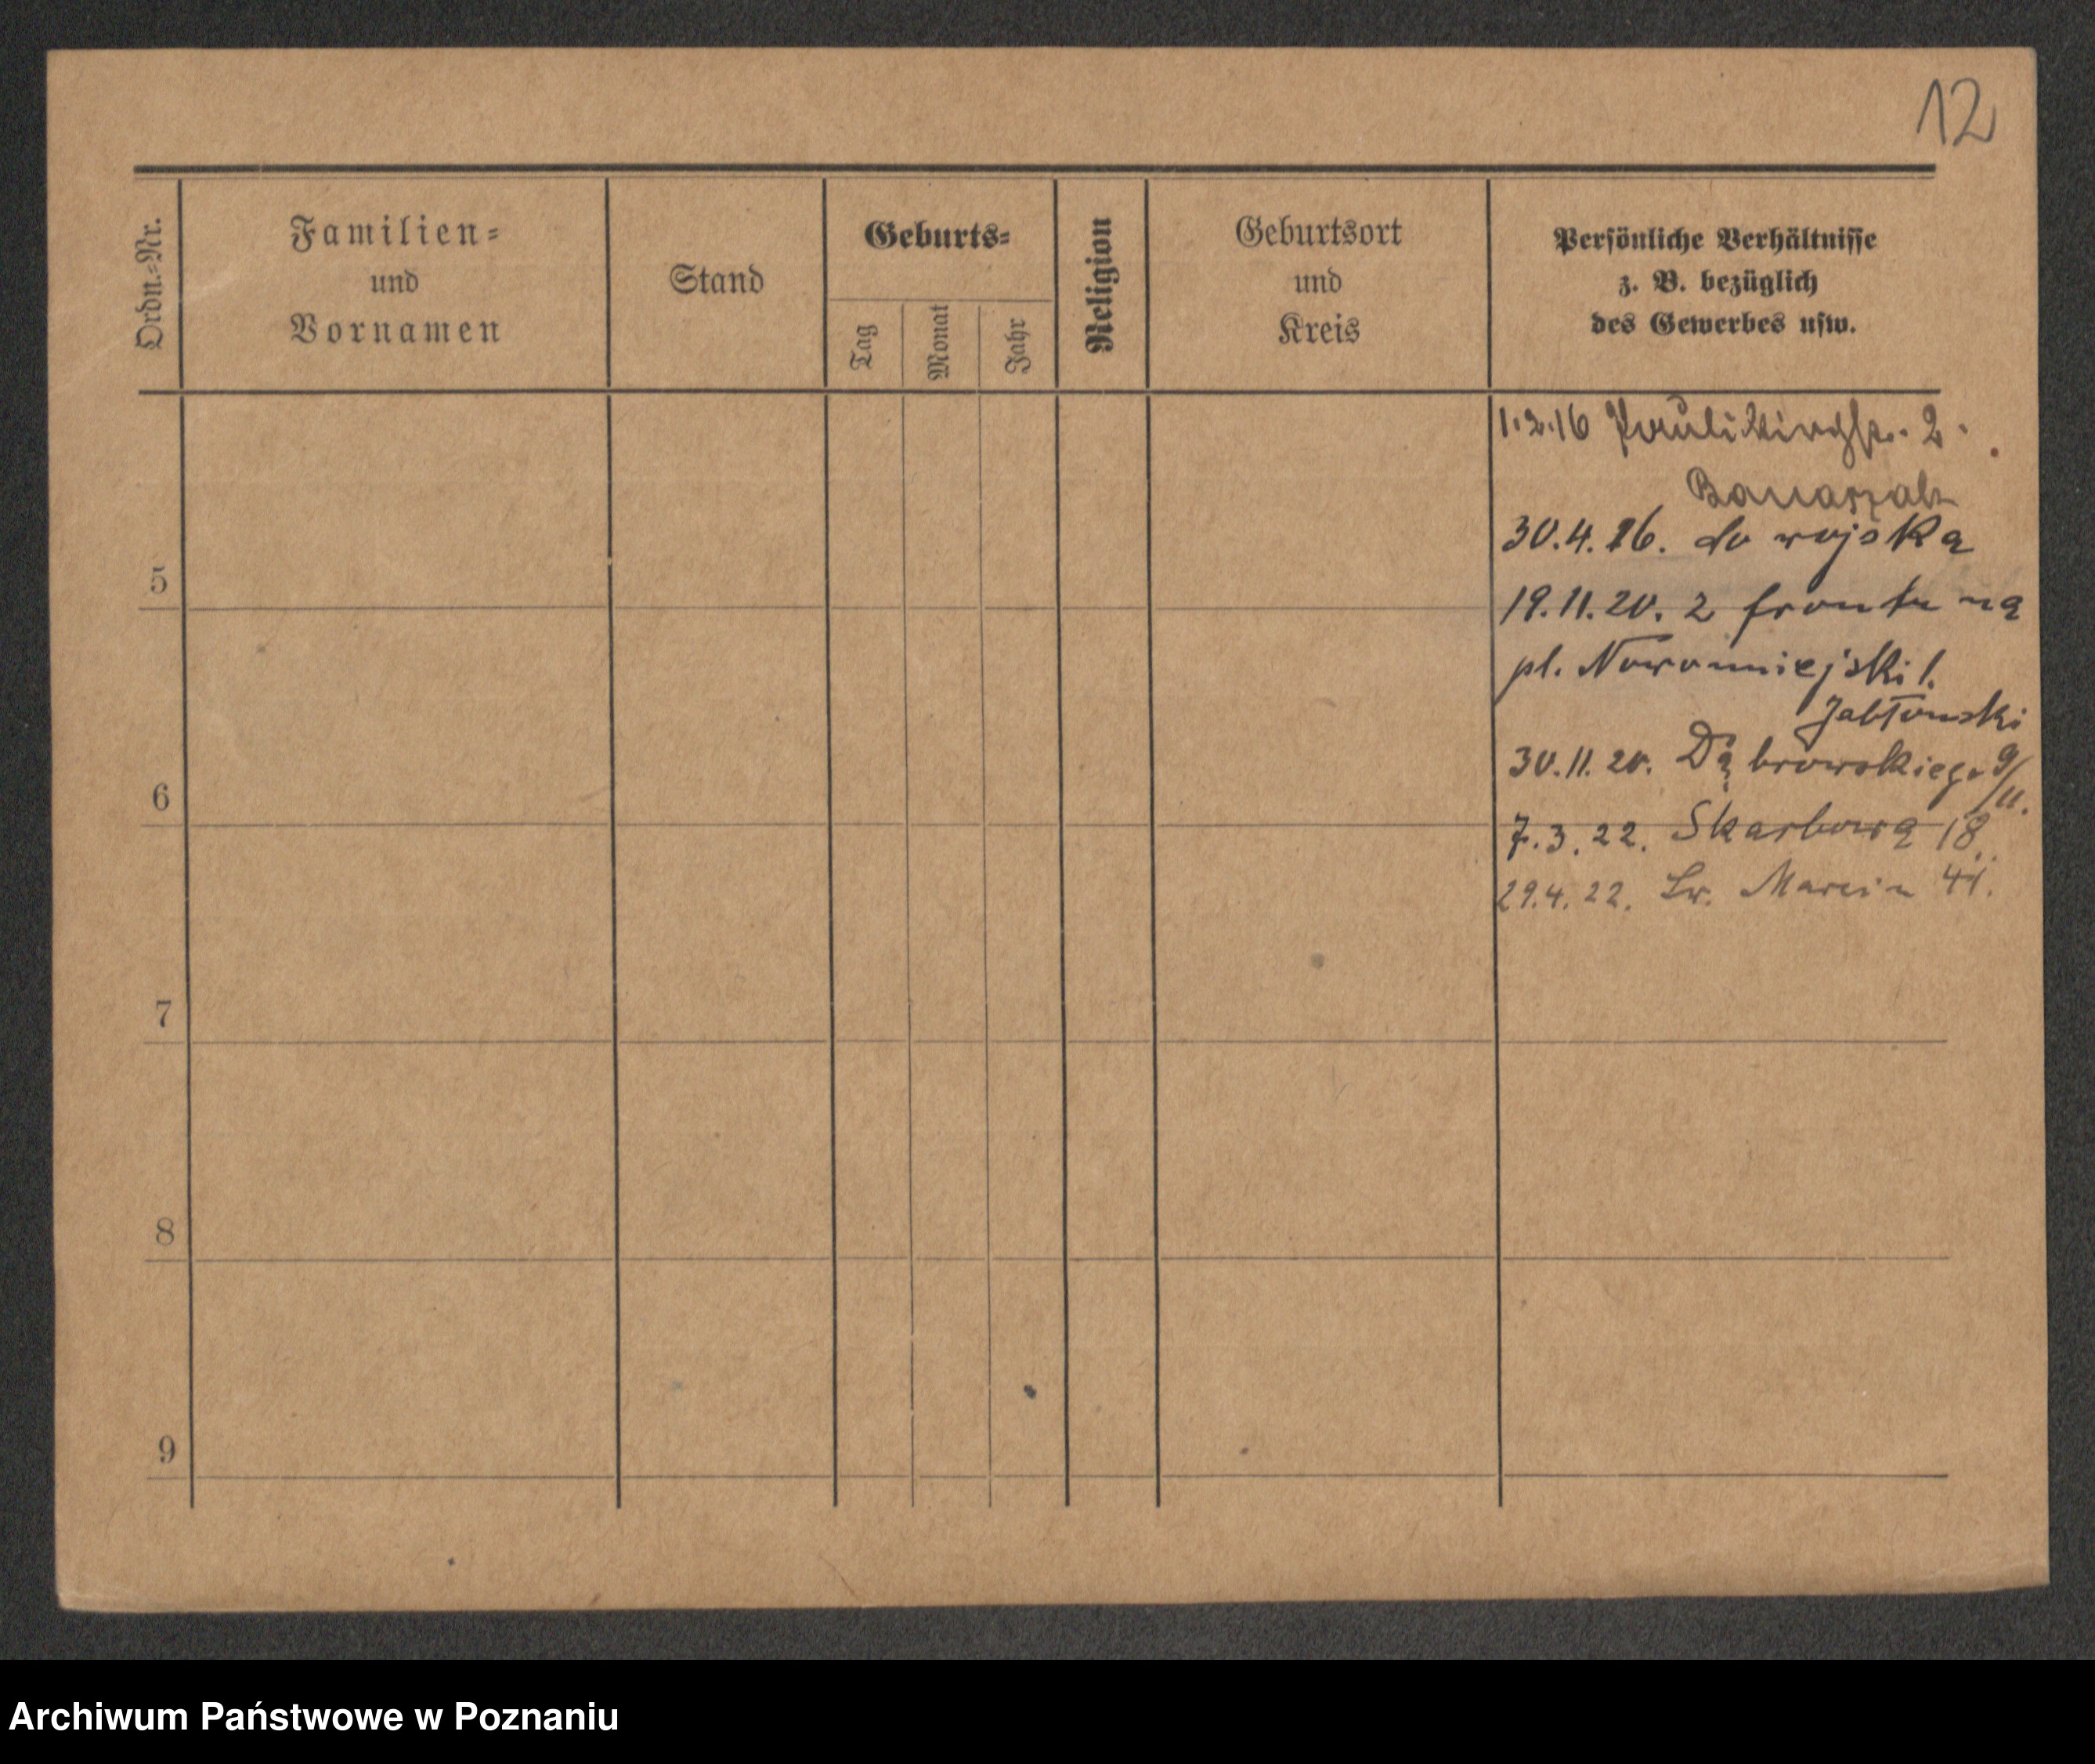 12
Ordn.-Nr.
Familien-
und
Vornamen
Stand
Geburts-
Tag
Monat
Jahr
Religion
Geburtsort
und
Kreis
Persönliche Verhältnisse
z. B. bezüglich
des Gewerbes usw.
1.2.16 Paulikirchstr. 2.
Banaszak
5
30.4.16. do wojska
19.11.20. z frontu na
pl. Nowomiejski 1.
Jabłoński
6
30.11.20. Dąbrowskiego 9/
II.
7.3.22. Skarbowa 18
29.4.22. Św. Marcin 41.
7
8
9
Archiwum Państwowe w Poznaniu